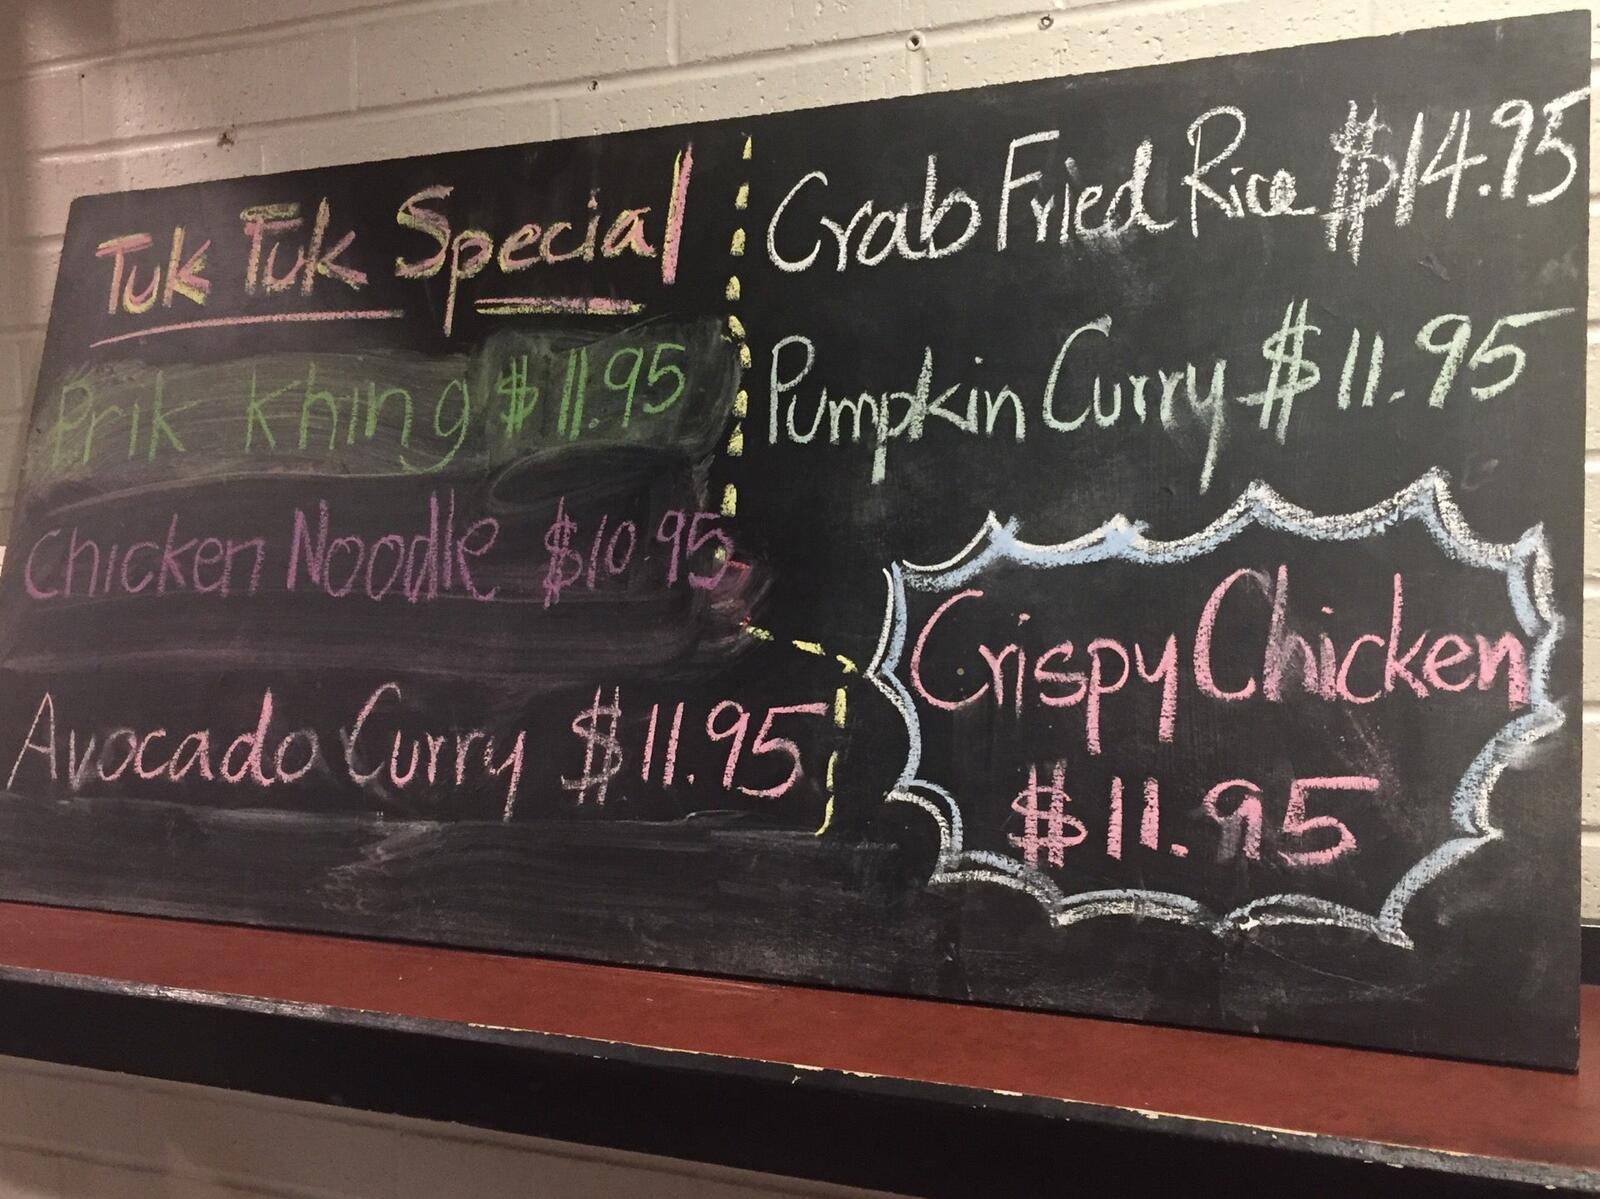 Tuk Tuk Special
Prik Khing $11.95
Chicken Noodle $10.95
Avocado Curry $11.95
Crab Fried Rice $14.95
Pumpkin Curry $11.95
Crispy Chicken
$11.95